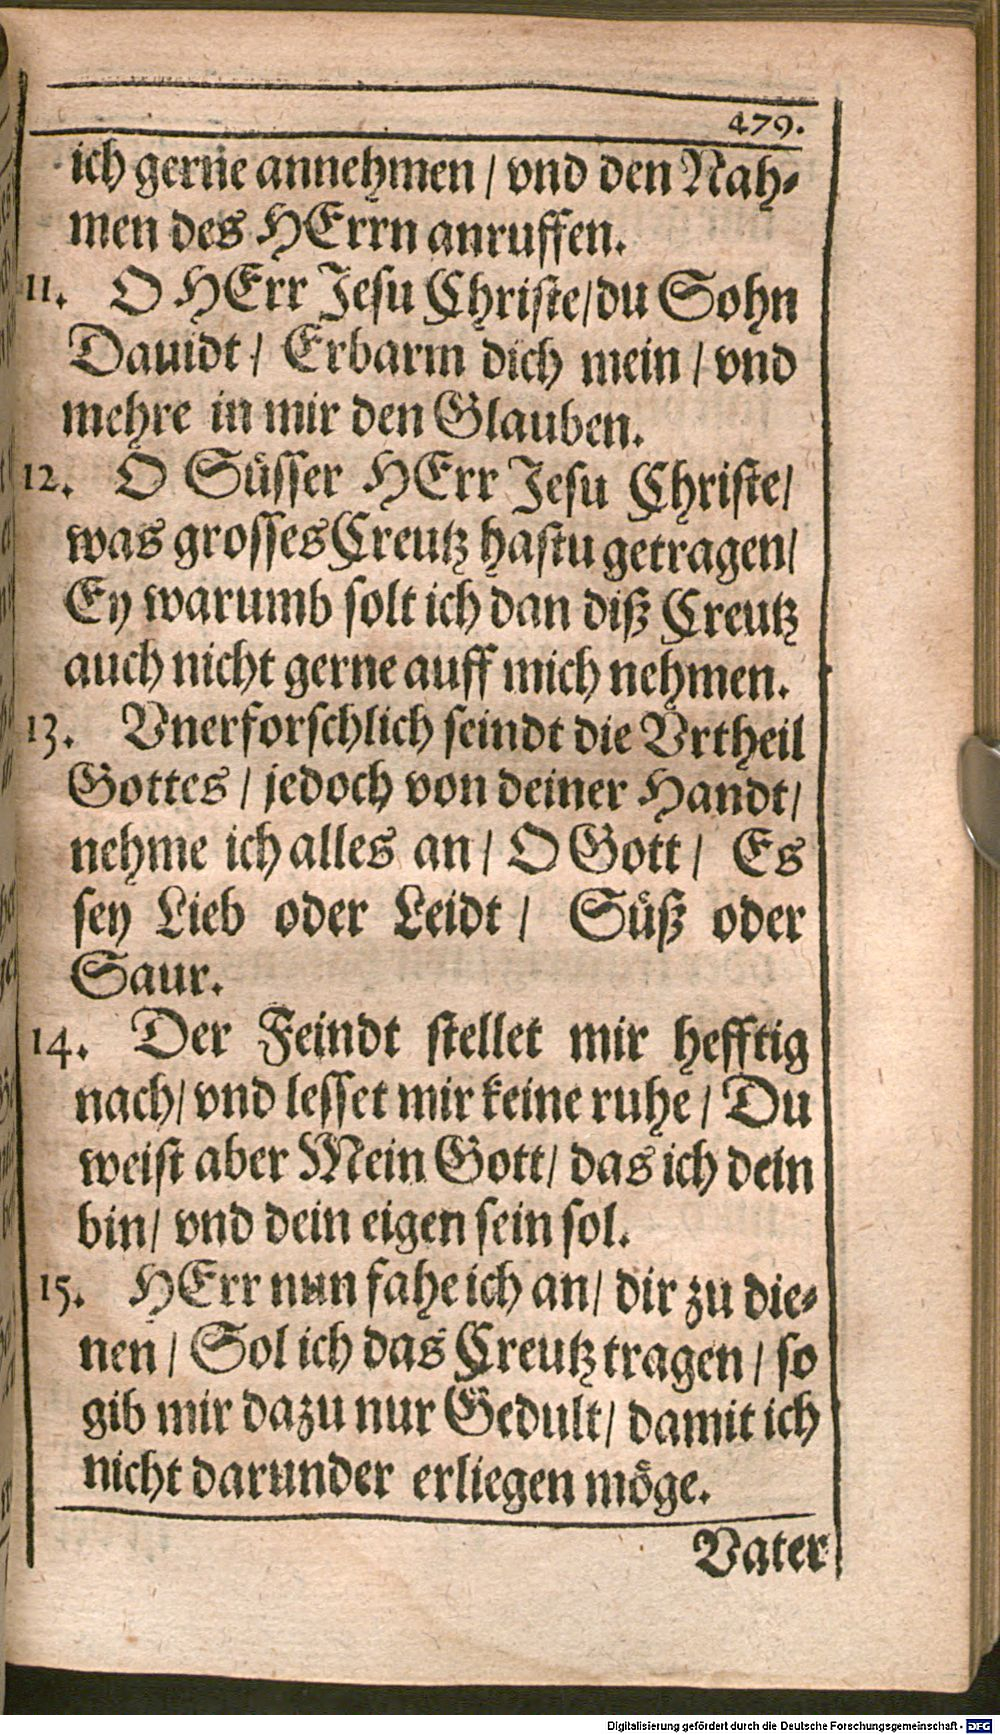 479.
ich gerne annehmen / vnd den Nah-
men des HErrn anruffen.
11. O HErr Jesu Christe/du Sohn
Dauidt / Erbarm dich mein / vnd
mehre in mir den Glauben.
12. O Süsser HErr Jesu Christe/
was grosses Creutz hastu getragen/
Ey warumb solt ich dan diß Creutz
auch nicht gerne auff mich nehmen.
13. Vnerforschlich seindt die Vrtheil
Gottes / jedoch von deiner Handt/
nehme ich alles an / O Gott / Es
sey Lieb oder Leidt / Süß oder
Saur.
14. Der Feindt stellet mir hefftig
nach/ vnd lesset mir keine ruhe / Du
weist aber Mein Gott/ das ich dein
bin/ vnd dein eigen sein sol.
15. HErr nun fahe ich an/ dir zu die-
nen / Sol ich das Creutz tragen / so
gib mir dazu nur Gedult/ damit ich
nicht darunder erliegen möge.
Vater
Digitalisierung gefördert durch die Deutsche Forschungsgemeinschaft - DFG